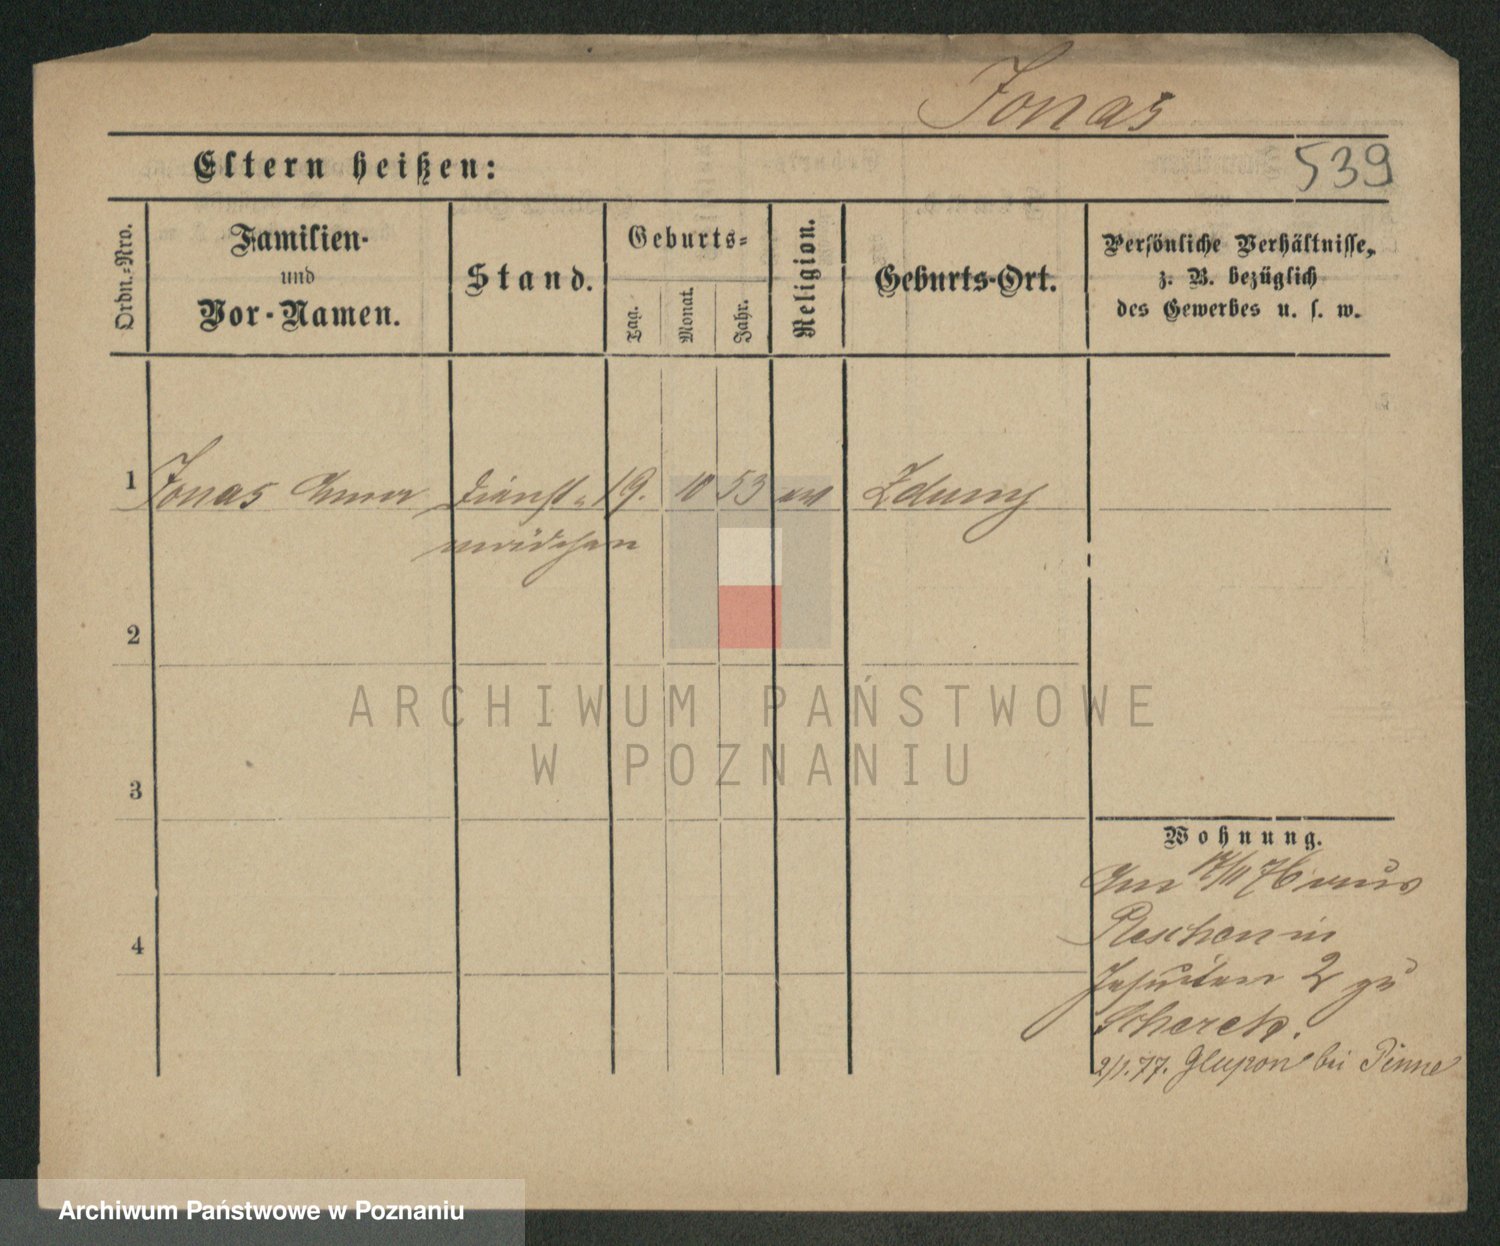 Jonas
Eltern heißen:
539
Ordn.-Nro.
Familien-
und
Vor-Namen.
Stand.
Geburts-
Tag.
Monat.
Jahr.
Religion.
Geburts-Ort.
Persönliche Verhältnisse,
z. B. bezüglich
des Gewerbes u. s. w.
1 Jonas Anna Dienst- 19. 10 53 ev Zduny
mädchen
2
3
4
Wohnung.
Am 17/11 76 aus
Pleschen in
Jesuiten 2 zu
2/1. 77. Glupon bei Pinne
ARCHIWUM PAŃSTWOWE
W POZNANIU
Archiwum Państwowe w Poznaniu